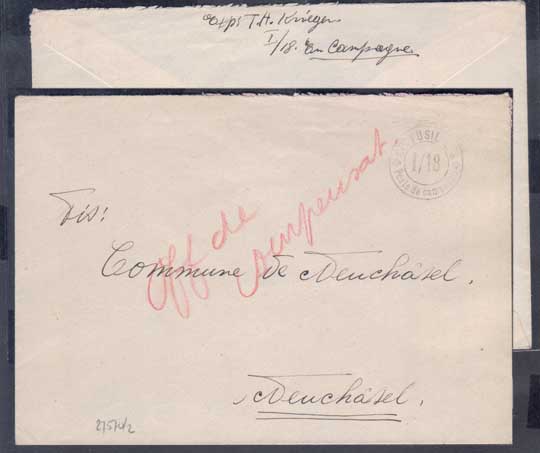 T.H. Krieger
I/18. En Campagne
FUSIL
I/18
Poste de campagne
Off de
compensat.
Tit:
Commune de Neuchâtel.
Neuchâtel.